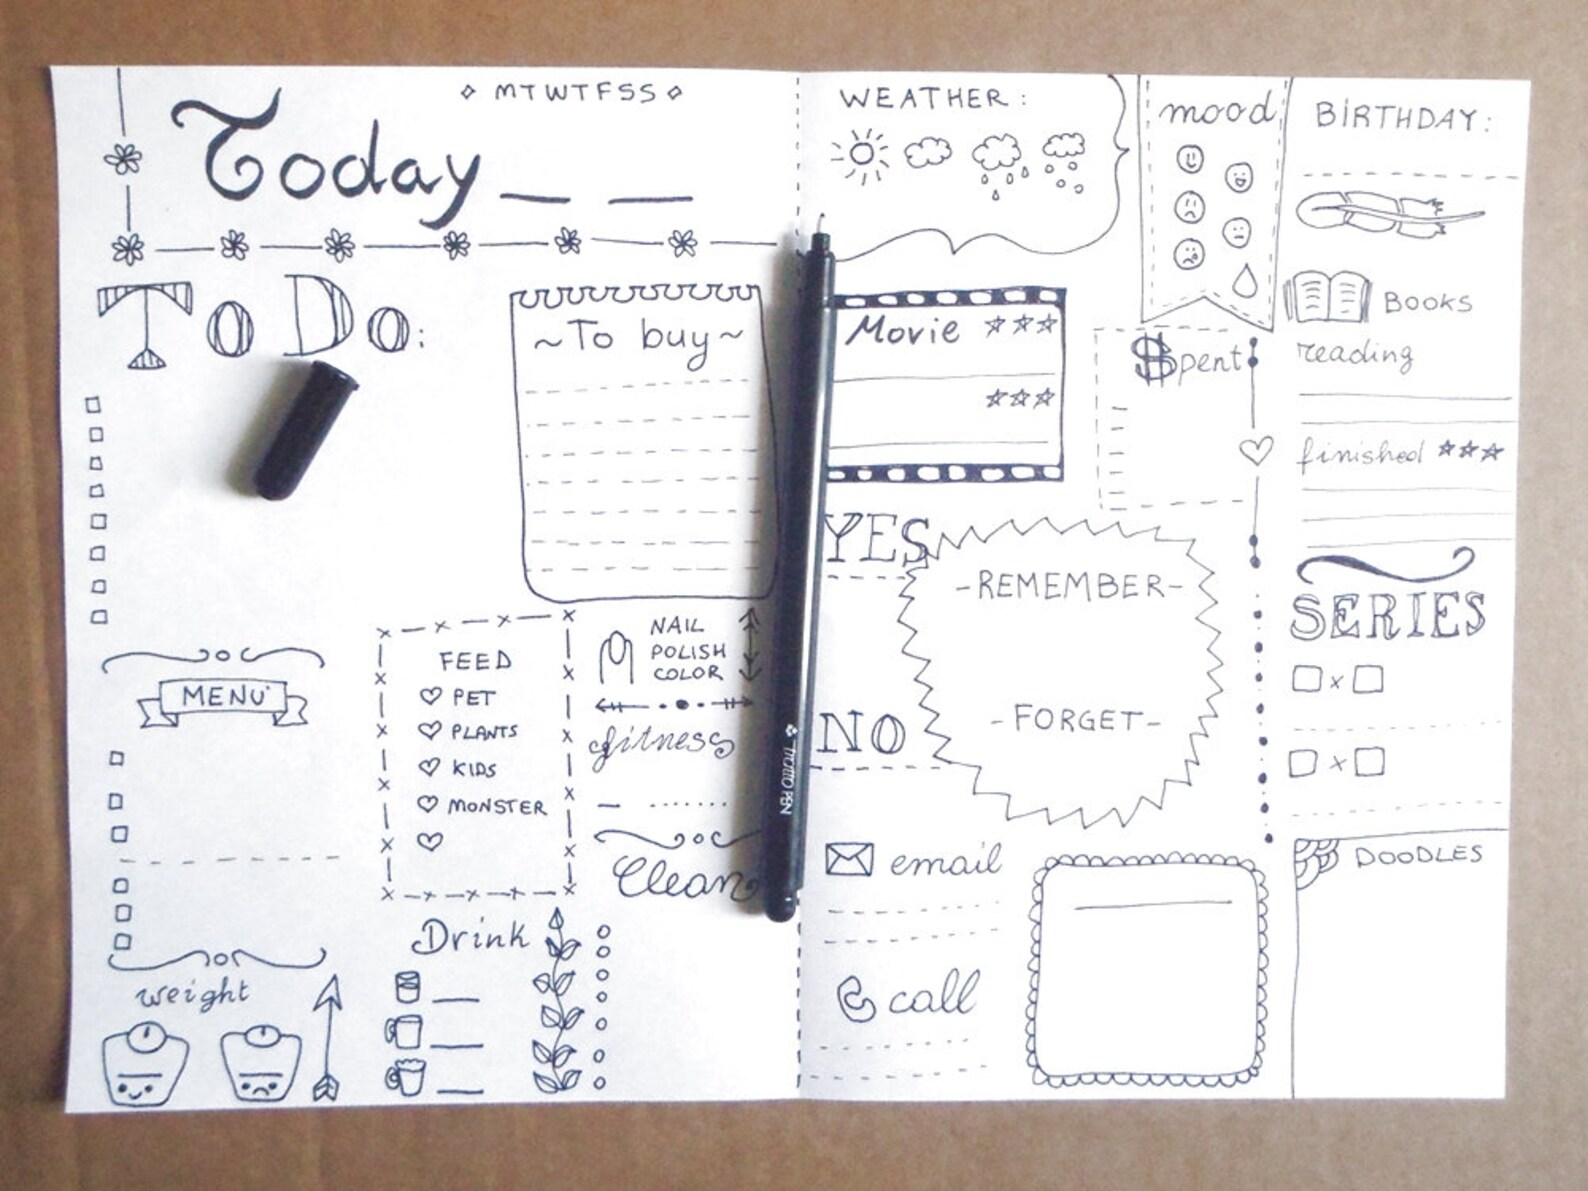 MTWTFSS
Today
To Do:
~To buy~
MENU
FEED
PET
PLANTS
KIDS
MONSTER
NAIL
POLISH
COLOR
fitness
Clean
Drink
weight
TRATTO PEN
WEATHER:
mood
BIRTHDAY:
Movie
$pent
BOOKS
reading
finished
YES
-REMEMBER-
NO
-FORGET-
SERIES
x
x
email
call
DOODLES